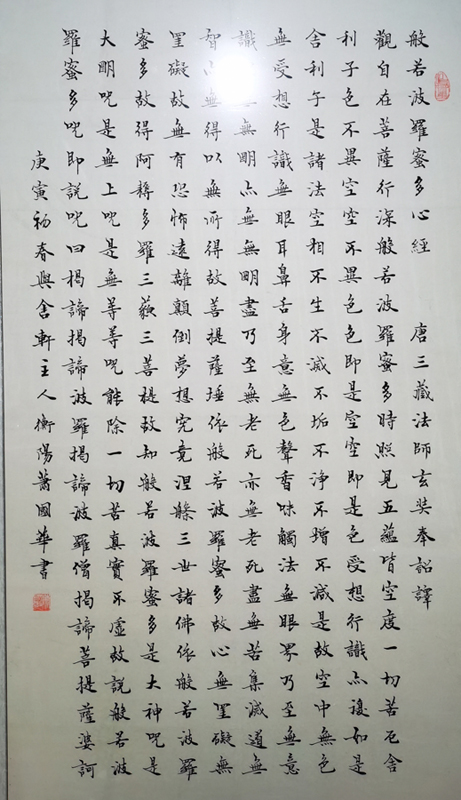 般若波羅蜜多心經 唐三藏法師玄奘奉詔譯
觀自在菩薩行深般若波羅蜜多時照見五蘊皆空度一切苦厄舍
利子色不異空空不異色色即是空空即是色受想行識亦復如是
舍利子是諸法空相不生不滅不垢不淨不增不減是故空中無色
無受想行識無眼耳鼻舌身意無色聲香味觸法無眼界乃至無意
識無無明亦無無明盡乃至無老死亦無老死盡無苦集滅道無
智亦無得以無所得故菩提薩埵依般若波羅蜜多故心無罣礙無
罣礙故無有恐怖遠離顛倒夢想究竟涅槃三世諸佛依般若波羅
蜜多故得阿耨多羅三藐三菩提故知般若波羅蜜多是大神咒是
大明咒是無上咒是無等等咒能除一切苦真實不虛故說般若波
羅蜜多咒即說咒曰揭諦揭諦波羅揭諦波羅僧揭諦菩提薩婆訶
庚寅初春與舍軒主人衡陽蕭國華書